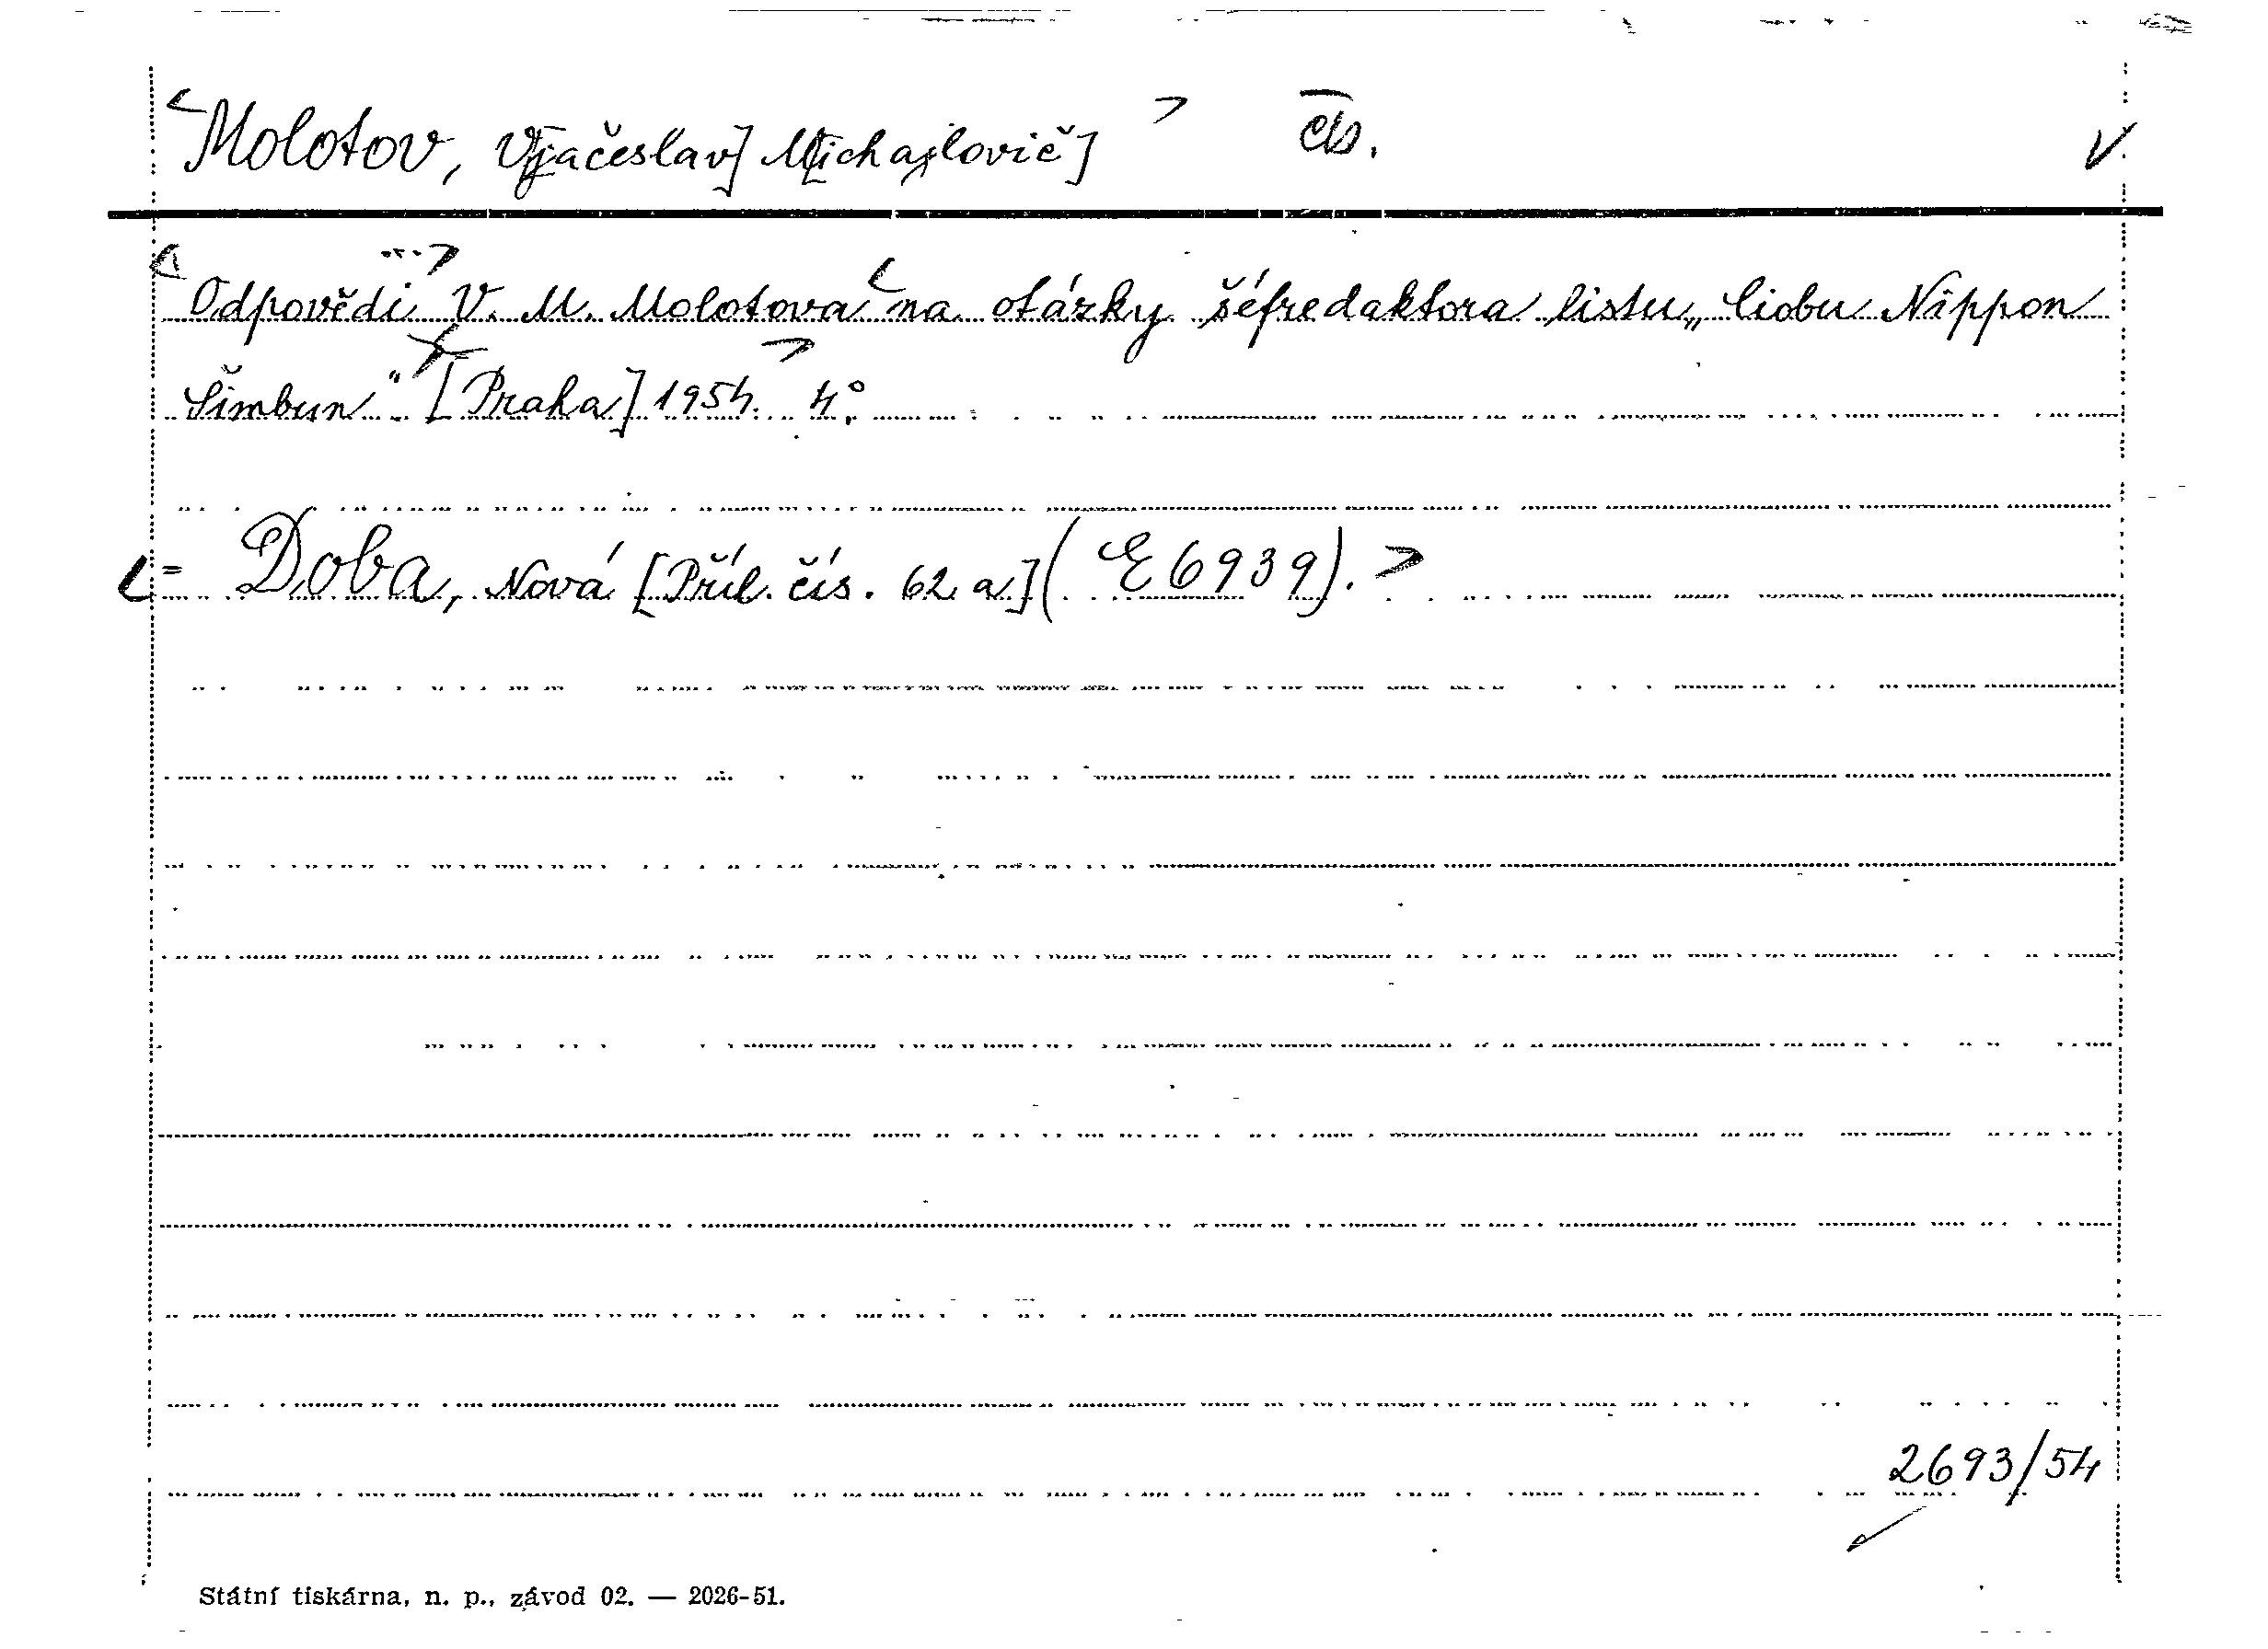 Molotov, V[jačeslav] M[ichajlovič] čb. V
Odpovědi V. M. Molotova na otázky šéfredaktora listu „Ciobu Nippon
Šimbun“. [Praha] 1954. 4°.
= Doba, Nová [Příl. čís. 62 a] (E 6939).
2693/54
Státní tiskárna, n. p., závod 02. — 2026-51.